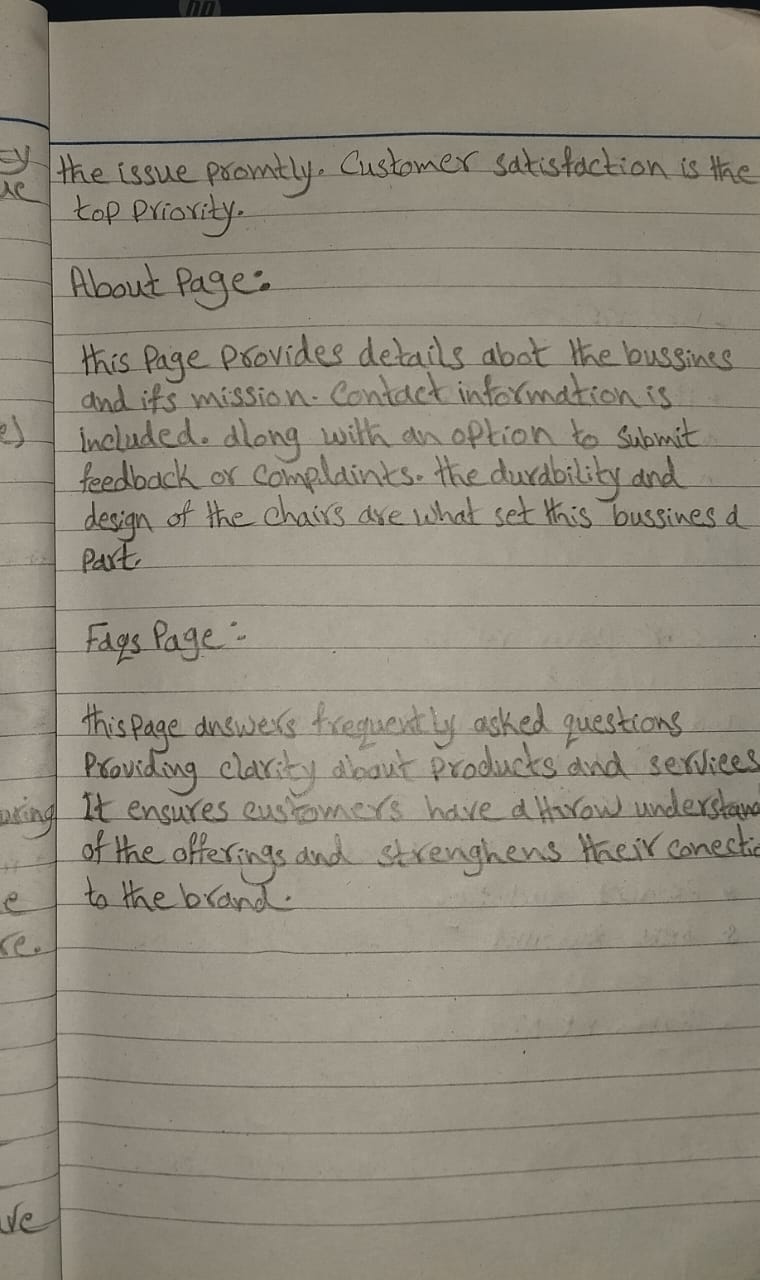 the issue promtly. Customer satisfaction is the
top priority.
About Page:
this Page Provides details abot the bussines
and it's mission. Contact information is
included. along with an option to submit
feedback or complaints. the durability and
design of the chairs are what set this bussines a
Part.
Faqs Page:-
this page answers frequently asked questions
Providing clarity about products and services
It ensures customers have a thrrow understand
of the offerings and strenghens their conectio
to the brand.